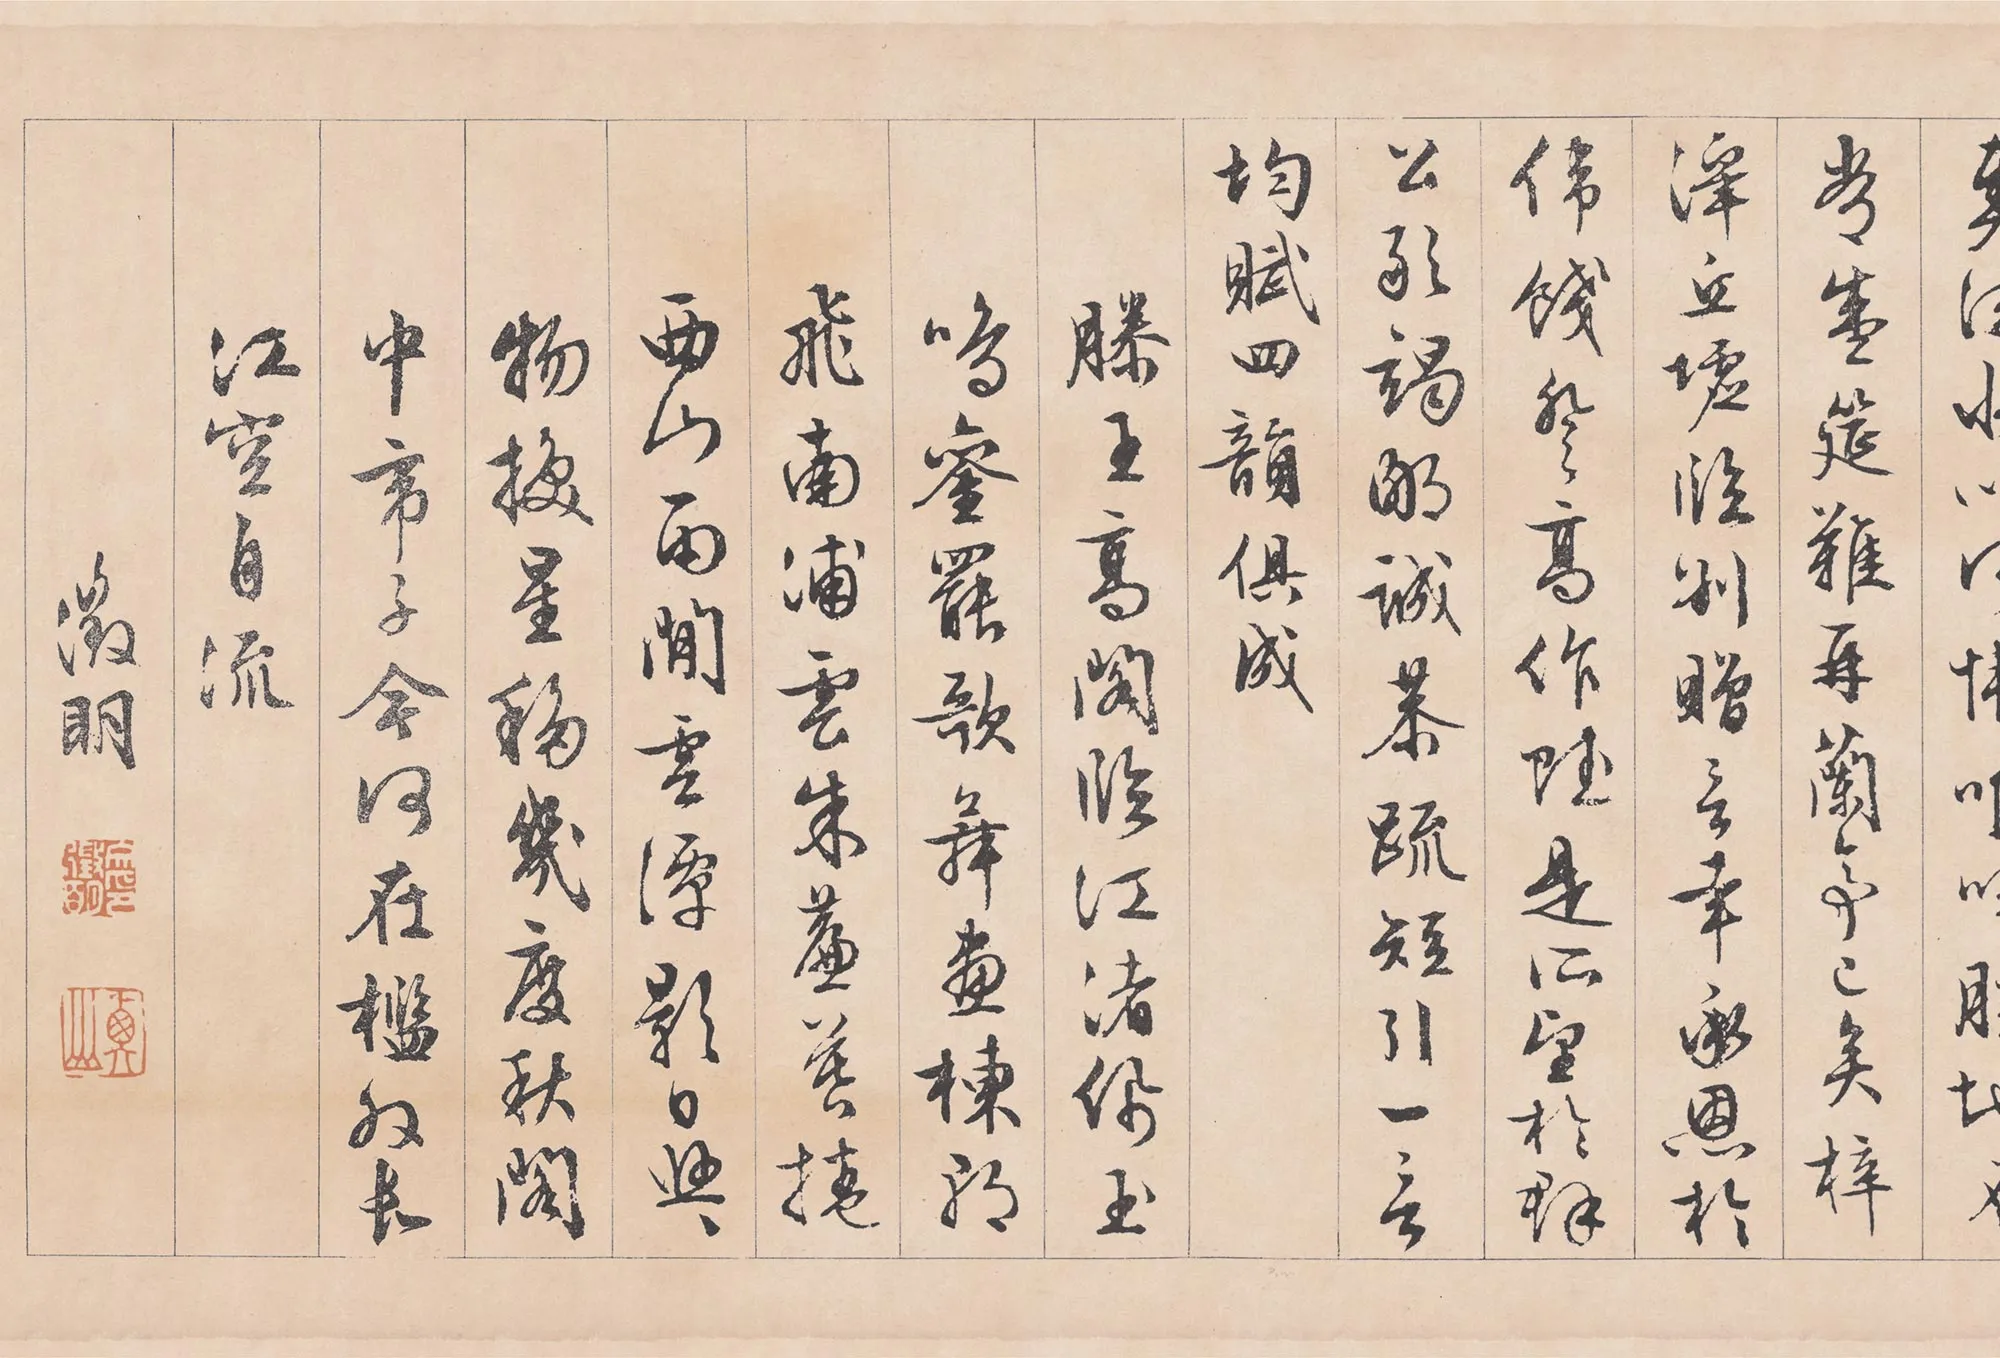 常盛筵難再蘭亭已矣梓
澤丘墟臨別贈言幸承恩於
偉餞登高作賦是所望於群
公敢竭鄙誠恭疏短引一言
均賦四韻俱成
滕王高閣臨江渚佩玉
鳴鑾罷歌舞畫棟朝
飛南浦雲朱簾暮捲
西山雨閒雲潭影日悠〻
物換星移幾度秋閣
中帝子今何在檻外長
江空自流
徵明
文徵明印
衡山